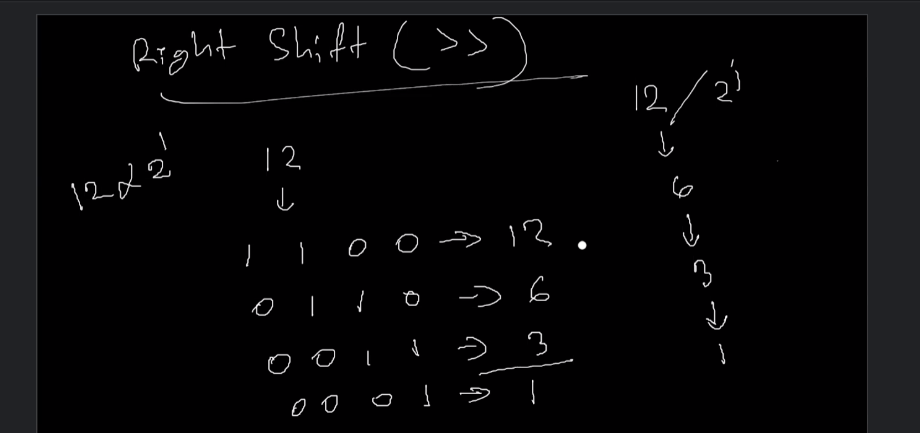 Right Shift (>>)
12 / 2^1
12 2^1
12
↓
1 1 0 0 → 12
0 1 1 0 → 6
0 0 1 1 → 3
0 0 0 1 → 1
↓
6
↓
3
↓
1